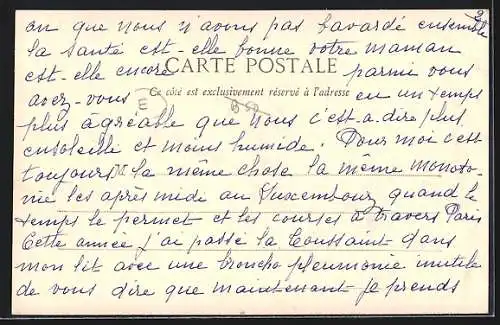 2
on que nous n'avons pas bavardé ensemble
la santé est-elle bonne votre maman
est-elle encore parmi vous
CARTE POSTALE
Ce côté est exclusivement réservé à l'adresse
avez-vous eu un temps
E
plus agréable que nous c'est-à-dire plus
ensoleillé et moins humide. Pour moi c'est
toujours la même chose la même monoto-
nie les après midi au Luxembourg quand le
temps le permet et les courses à travers Paris
Cette année j'ai passé la Toussaint dans
mon lit avec une broncho pleumonie inutile
de vous dire que maintenant je prends